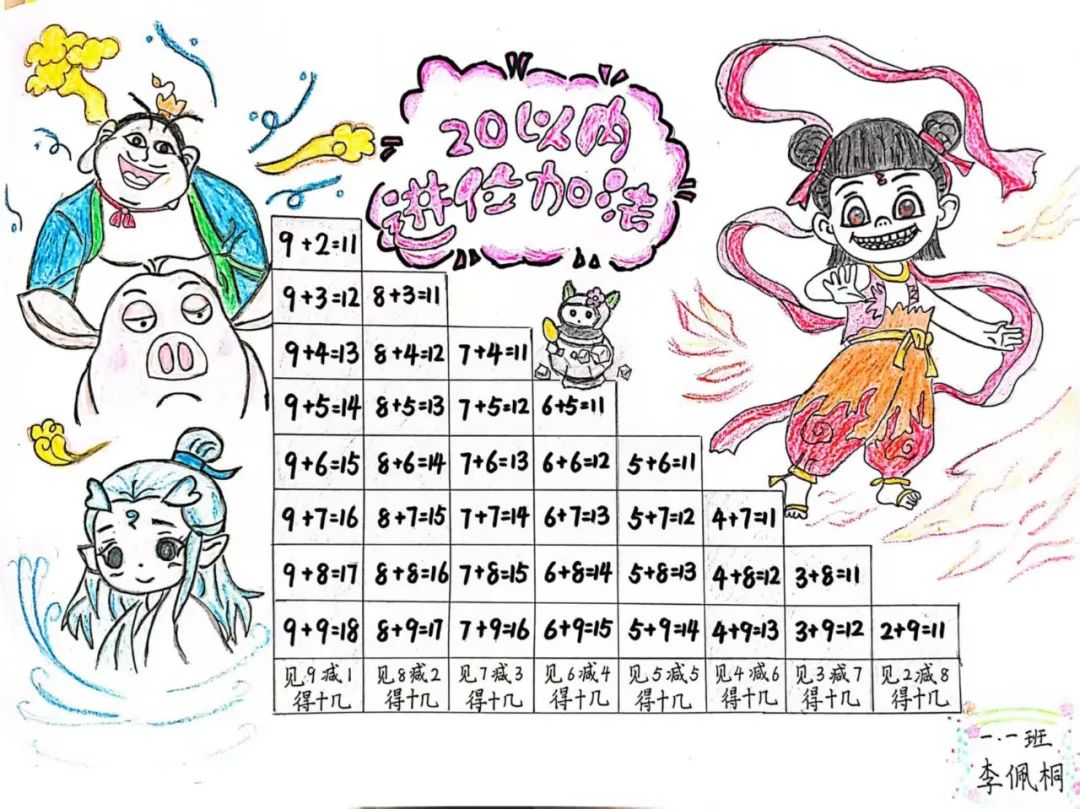 20以内
进位加法
9+2=11
9+3=12 8+3=11
9+4=13 8+4=12 7+4=11
9+5=14 8+5=13 7+5=12 6+5=11
9+6=15 8+6=14 7+6=13 6+6=12 5+6=11
9+7=16 8+7=15 7+7=14 6+7=13 5+7=12 4+7=11
9+8=17 8+8=16 7+8=15 6+8=14 5+8=13 4+8=12 3+8=11
9+9=18 8+9=17 7+9=16 6+9=15 5+9=14 4+9=13 3+9=12 2+9=11
见9减1 见8减2 见7减3 见6减4 见5减5 见4减6 见3减7 见2减8
得十几 得十几 得十几 得十几 得十几 得十几 得十几 得十几
一.一班
李佩桐